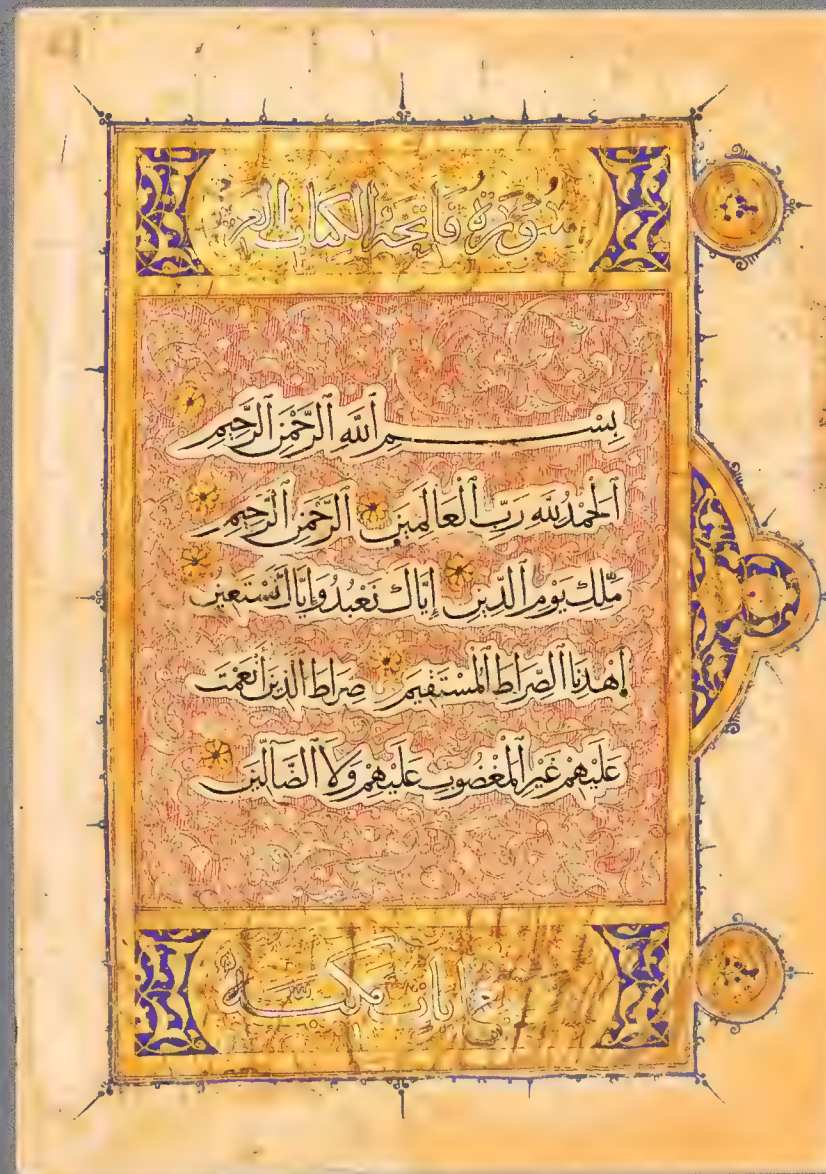 سُورَةُ فَاتِحَةِ الكتاب
بِسْمِ ٱللَّهِ ٱلرَّحْمَٰنِ ٱلرَّحِيمِ
ٱلْحَمْدُ لِلَّهِ رَبِّ ٱلْعَالَمِينَ ٱلرَّحْمَٰنِ ٱلرَّحِيمِ
مَٰلِكِ يَوْمِ ٱلدِّينِ إِيَّاكَ نَعْبُدُ وَإِيَّاكَ نَسْتَعِينُ
ٱهْدِنَا ٱلصِّرَاطَ ٱلْمُسْتَقِيمَ صِرَاطَ ٱلَّذِينَ أَنْعَمْتَ
عَلَيْهِمْ غَيْرِ ٱلْمَغْضُوبِ عَلَيْهِمْ وَلَا ٱلضَّآلِّينَ
آيات مكية